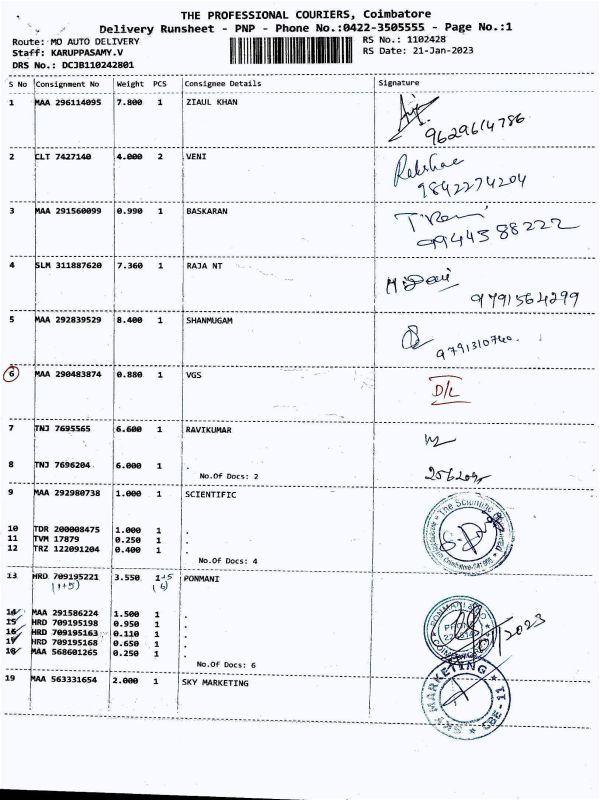 THE PROFESSIONAL COURIERS, Coimbatore
Delivery Runsheet - PNP - Phone No.:0422-3505555 - Page No.:1
Route: MO AUTO DELIVERY RS No.: 1102428
Staff: KARUPPASAMY.V RS Date: 21-Jan-2023
DRS No.: DCJB110242801
S No Consignment No Weight PCS Consignee Details Signature
1 MAA 296114095 7.800 1 ZIAUL KHAN
9629614786
2 CLT 7427140 4.000 2 VENI
9842274204
3 MAA 291560099 0.990 1 BASKARAN
9944588222
4 SLM 311887620 7.360 1 RAJA NT
9791564299
5 MAA 292839529 8.400 1 SHANMUGAM
9791310740.
6 MAA 290483874 0.880 1 VGS D/L
7 TNJ 7695565 6.600 1 RAVIKUMAR
8 TNJ 7696204 6.000 1 .
No.Of Docs: 2
9 MAA 292980738 1.000 1 SCIENTIFIC
10 TDR 200008475 1.000 1 .
11 TVM 17879 0.250 1 .
12 TRZ 122091204 0.400 1 .
No.Of Docs: 4
13 HRD 709195221 3.550 1+5 PONMANI
(1+5) (6)
14 MAA 291586224 1.500 1 .
15 HRD 709195198 0.950 1 .
16 HRD 709195163 0.110 1 .
17 HRD 709195168 0.650 1 .
18 MAA 568601265 0.250 1 .
No.Of Docs: 6
19 MAA 563331654 2.000 1 SKY MARKETING
SKY MARKETING CBE-11